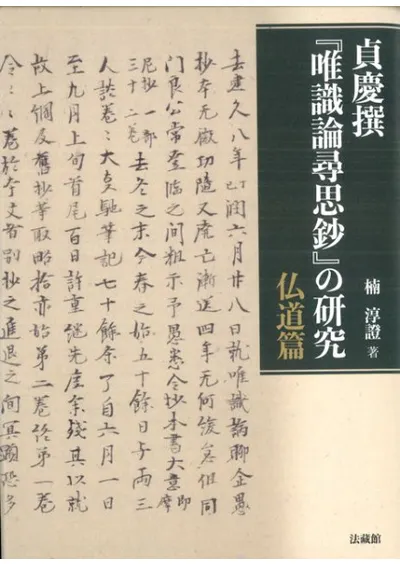 貞慶撰
『唯識論尋思鈔』の研究
仏道篇
楠 淳證 著
法藏館
去建久八年丁巳潤六月廿八日就唯識論聊企愚
抄本无功隨又廃亡漸送四年无何後怠但同
門良公常登臨之間粗示予愚令抄本書大意
一部三十二巻去冬之末今春之始五十餘日与両三
人談巻〻大馳筆記七十餘条了自六月一日
至九月上旬首尾百日許重継先度余残其以就
故上綱及舊抄等取略拾亦始第二巻終第一巻
巻於今文別抄之進退之間冥顕恐多